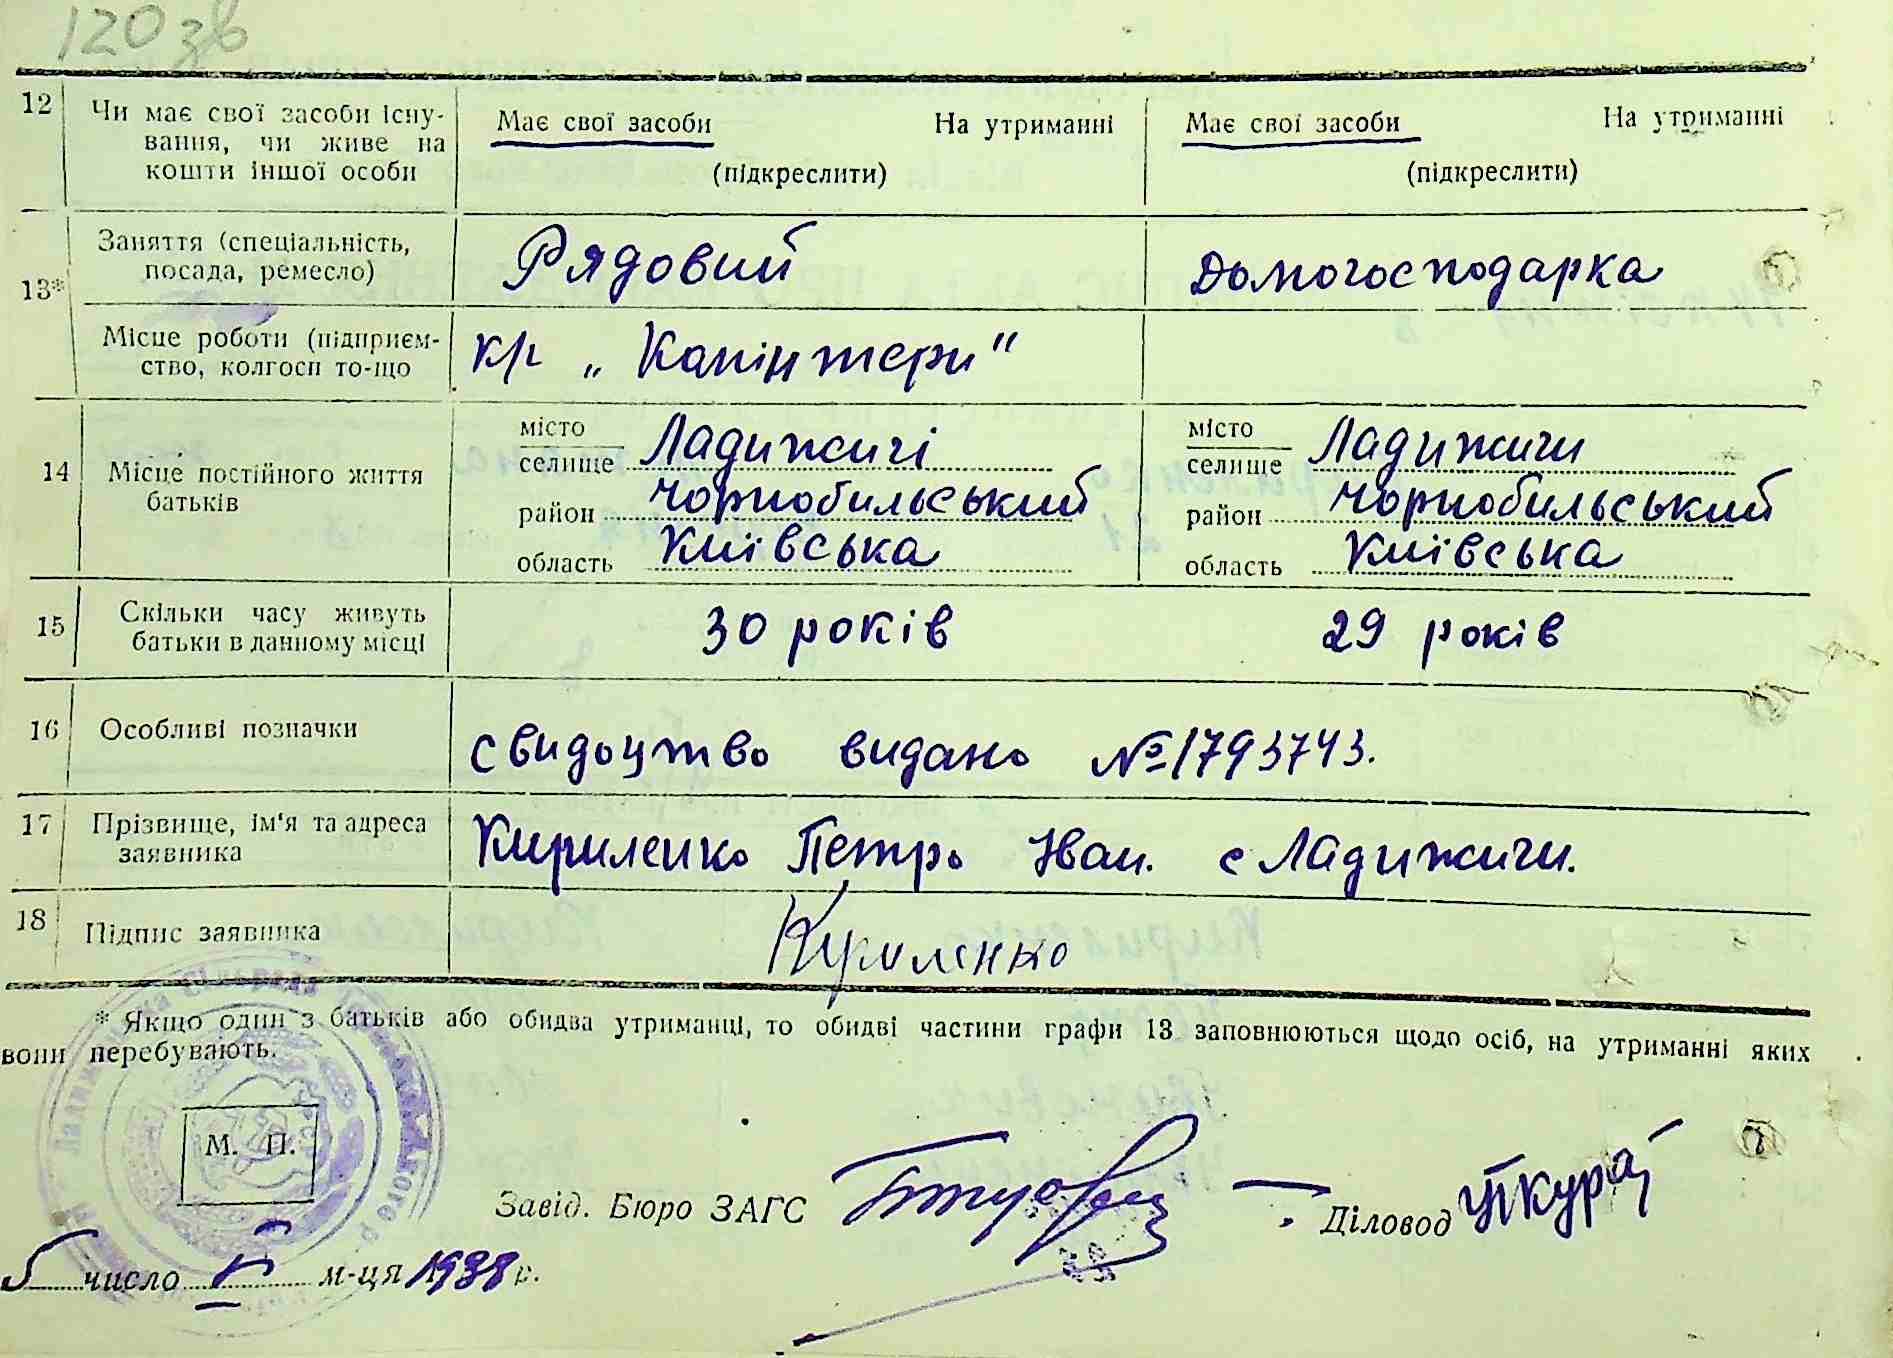 120 зв
12 Чи має свої засоби існу- Має свої засоби На утриманні Має свої засоби На утриманні
вання, чи живе на
кошти іншої особи (підкреслити) (підкреслити)
13* Заняття (спеціальність, Рядовий Домогосподарка
посада, ремесло)
Місце роботи (підприєм- к/г „Комінтерн"
ство, колгосп то-що
14 Місце постійного життя місто Ладижичі місто Ладижичи
батьків селище селище
район Чорнобильський район Чорнобильський
область Київська область Київська
15 Скільки часу живуть 30 років 29 років
батьки в данному місці
16 Особливі позначки Свидоцтво видано №1793743.
17 Прізвище, ім'я та адреса Кириленко Петро Іван. с Ладижичи.
заявника
18 Підпис заявника Кириленко
* Якщо один з батьків або обидва утриманці, то обидві частини графи 13 заповнюються щодо осіб, на утриманні яких
вони перебувають.
М. П.
Завід. Бюро ЗАГС Діловод
5 число V м-ця 1938 р.